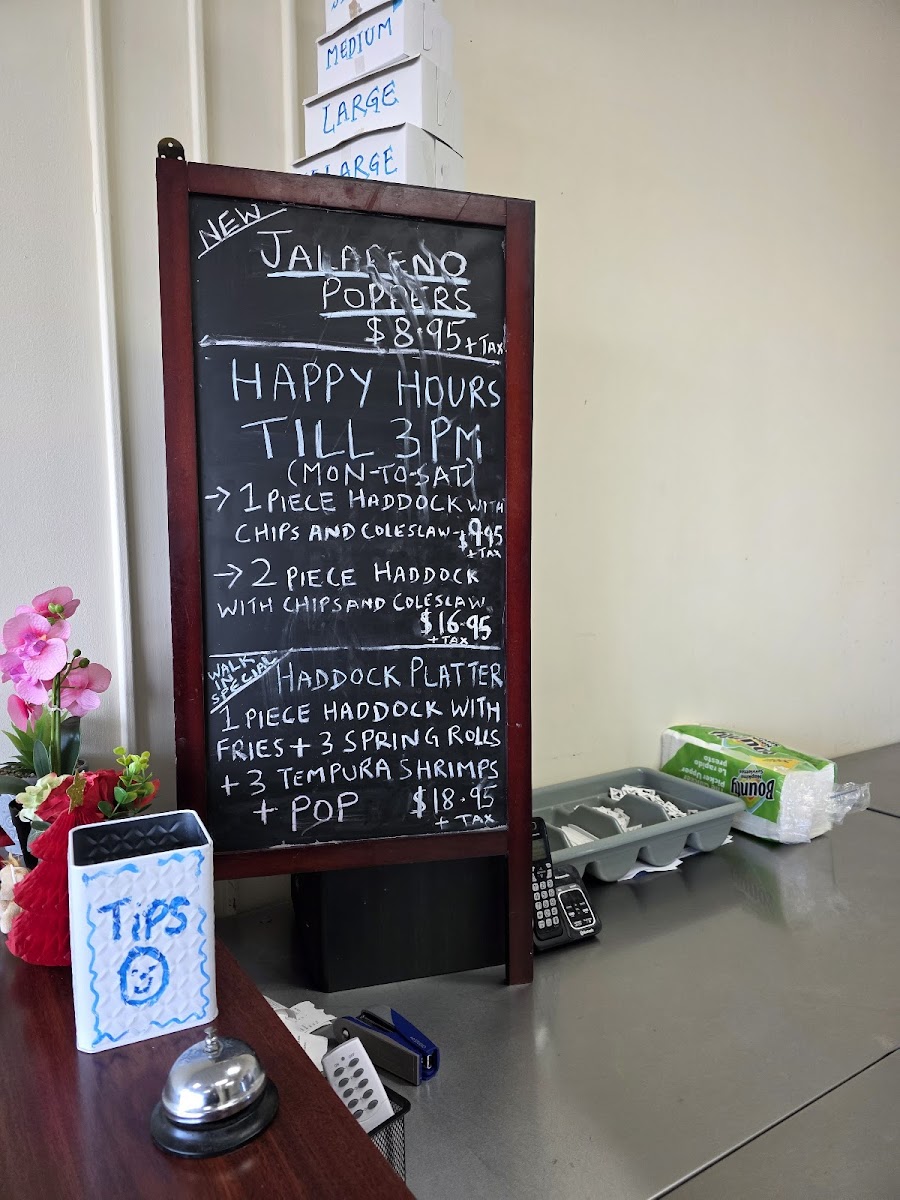 MEDIUM
LARGE
LARGE
NEW
JALAPENO
POPPERS
$8.95 + TAX
HAPPY HOURS
TILL 3PM
(MON-TO-SAT)
→ 1 PIECE HADDOCK WITH
CHIPS AND COLESLAW - $9.95
+ TAX
→ 2 PIECE HADDOCK
WITH CHIPS AND COLESLAW
$16.95
+ TAX
WALK
IN
SPECIAL
HADDOCK PLATTER
1 PIECE HADDOCK WITH
FRIES + 3 SPRING ROLLS
+ 3 TEMPURA SHRIMPS
+ POP $18.95
+ TAX
TiPS
Bounty
Picker Upper
Le rapide
presto